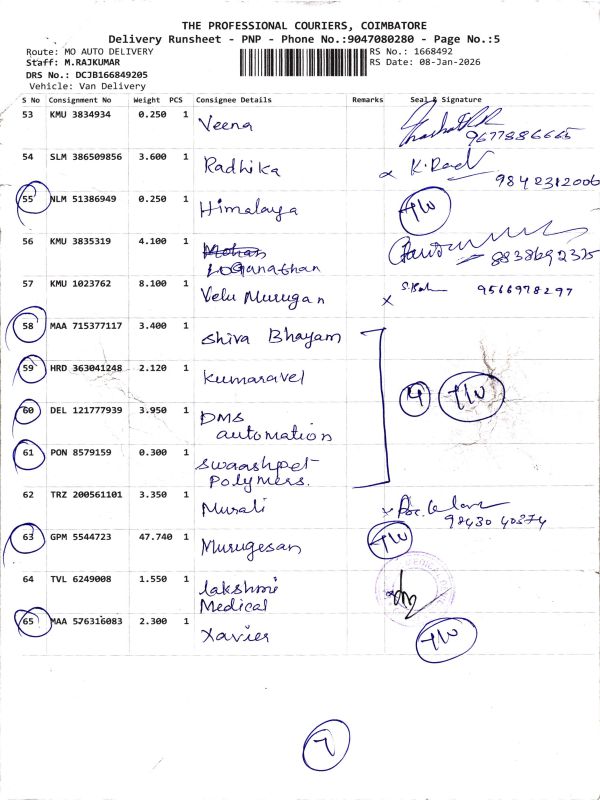 THE PROFESSIONAL COURIERS, COIMBATORE
Delivery Runsheet - PNP - Phone No.:9047080280 - Page No.:5
Route: MO AUTO DELIVERY RS No.: 1668492
Staff: M.RAJKUMAR RS Date: 08-Jan-2026
DRS No.: DCJB166849205
Vehicle: Van Delivery
S No Consignment No Weight PCS Consignee Details Remarks Seal & Signature
53 KMU 3834934 0.250 1 Veena 9677886665
54 SLM 386509856 3.600 1 Radhika K.Rad 9842312006
55 NLM 51386949 0.250 1 Himalaya T/W
56 KMU 3835319 4.100 1 Mohan
Loganathan 8838692375
57 KMU 1023762 8.100 1 Velu Murugan X 9566978297
58 MAA 715377117 3.400 1 Shiva Bhayam
59 HRD 363041248 2.120 1 Kumaravel 4 T/W
60 DEL 121777939 3.950 1 DMS
automation
61 PON 8579159 0.300 1 Swaashpet
Polymers.
62 TRZ 200561101 3.350 1 Murali 98430 40374
63 GPM 5544723 47.740 1 Murugesan T/W
64 TVL 6249008 1.550 1 Lakshmi
Medical
65 MAA 576316083 2.300 1 Xavier T/W
7